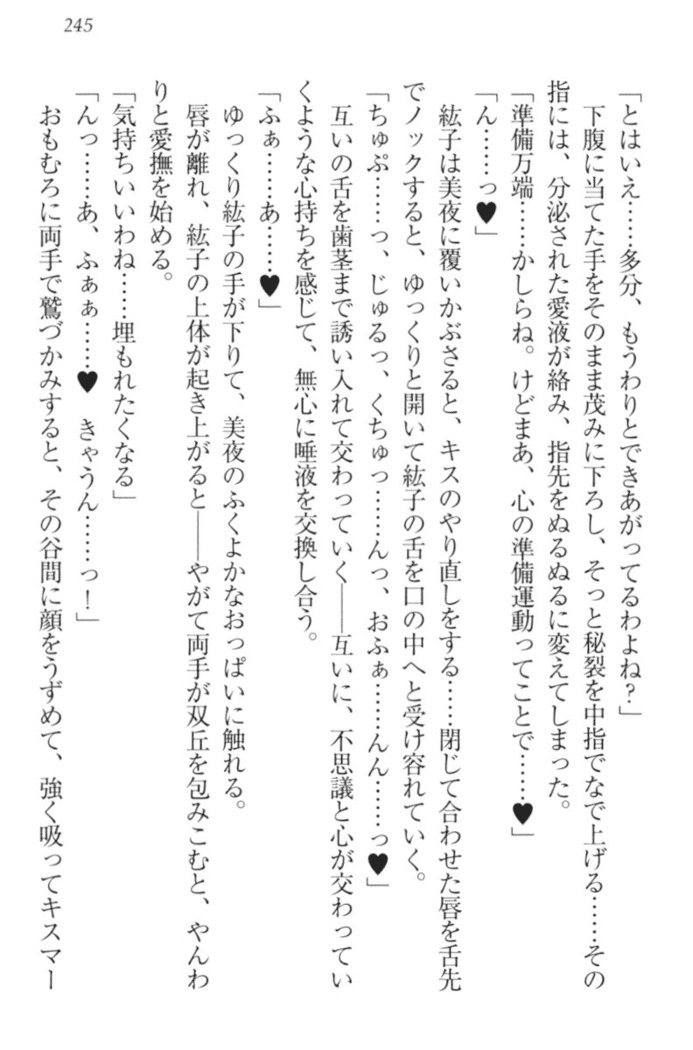 245
「とはいえ……多分、もうわりとできあがってるわよね?」
下腹に当てた手をそのまま茂みに下ろし、そっと秘裂を中指でなで上げる……その
指には、分泌された愛液が絡み、指先をぬるぬるに変えてしまった。
「準備万端……かしらね。けどまあ、心の準備運動ってことで……♥」
「ん……っ♥」
紘子は美夜に覆いかぶさると、キスのやり直しをする……閉じて合わせた唇を舌先
でノックすると、ゆっくりと開いて紘子の舌を口の中へと受け容れていく。
「ちゅぷ……っ、じゅるっ、くちゅっ……んっ、おふぁ……んん……っ♥」
互いの舌を歯茎まで誘い入れて交わっていく――互いに、不思議と心が交わってい
くような心持ちを感じて、無心に唾液を交換し合う。
「ふぁ……あ……♥」
ゆっくり紘子の手が下りて、美夜のふくよかなおっぱいに触れる。
唇が離れ、紘子の上体が起き上がると――やがて両手が双丘を包みこむと、やんわ
りと愛撫を始める。
「気持ちいいわね……埋もれたくなる」
「んっ……あ、ふぁぁ……♥ きゃうん……っ!」
おもむろに両手で鷲づかみすると、その谷間に顔をうずめて、強く吸ってキスマー